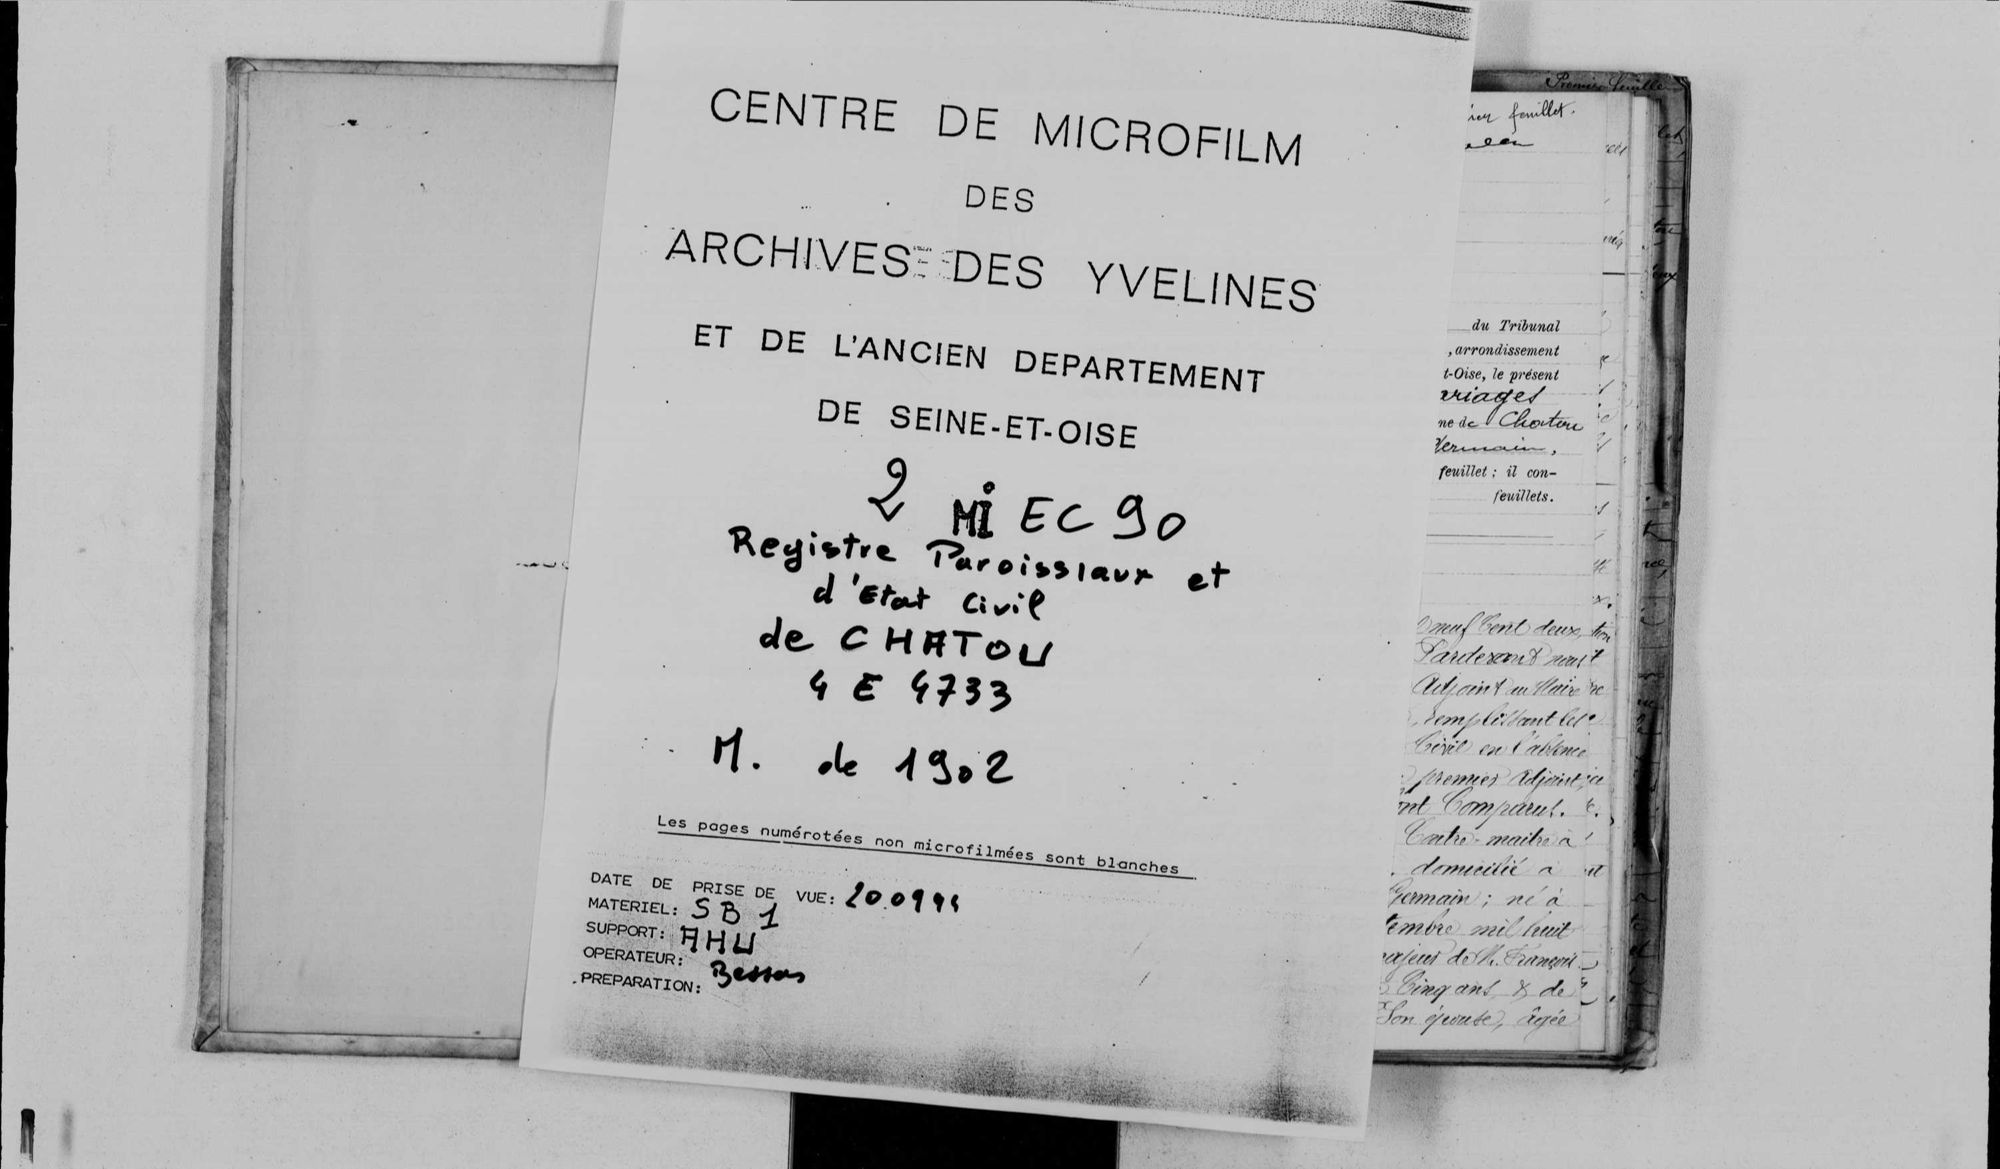 CENTRE DE MICROFILM
DES
ARCHIVES DES YVELINES
ET DE L'ANCIEN DEPARTEMENT
DE SEINE-ET-OISE
2 MI EC 90
Registre Paroissiaux et
d'Etat Civil
de CHATOU
4 E 4733
M. de 1902
Les pages numérotées non microfilmées sont blanches
DATE DE PRISE DE VUE: 20.09 94
MATERIEL: SB1
SUPPORT: AHU
OPERATEUR:
PREPARATION: Bessas
Premier feuille
feuillet.
du Tribunal
, arrondissement
t-Oise, le présent
ariages
ne de Chatou
Germain,
feuillet ; il con-
feuillets.
neuf Cent deux,
Pardevant nous
Adjoint au Maire
remplissant les
Civil en l'absence
premier Adjoint,
ont Comparus.
Contre-maitre à
domicilié à
Germain ; né à
tembre mil huit
majeur de M. François
Cinq ans, & de
Son épouse, âgée